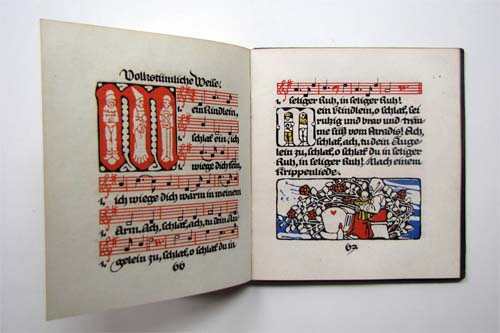 Volkstümliche Weise:
Mein Kindlein,
1. schlaf ein, ich
1. wiege dich fein,
1. ich wiege dich warm in meinem
1. Arm. Ach, schlaf, ach, tu dein Au-
1. gelein zu, schlaf, o schlaf du in
66
1. seliger Ruh, in seliger Ruh!
Mein Kindlein, o schlaf, sei
ruhig und brav und träu-
me süß vom Paradis! Ach,
schlaf, ach, tu dein Auge-
lein zu, schlaf, o schlaf du in seliger
Ruh, in seliger Ruh! Nach einem
Krippenliede.
67